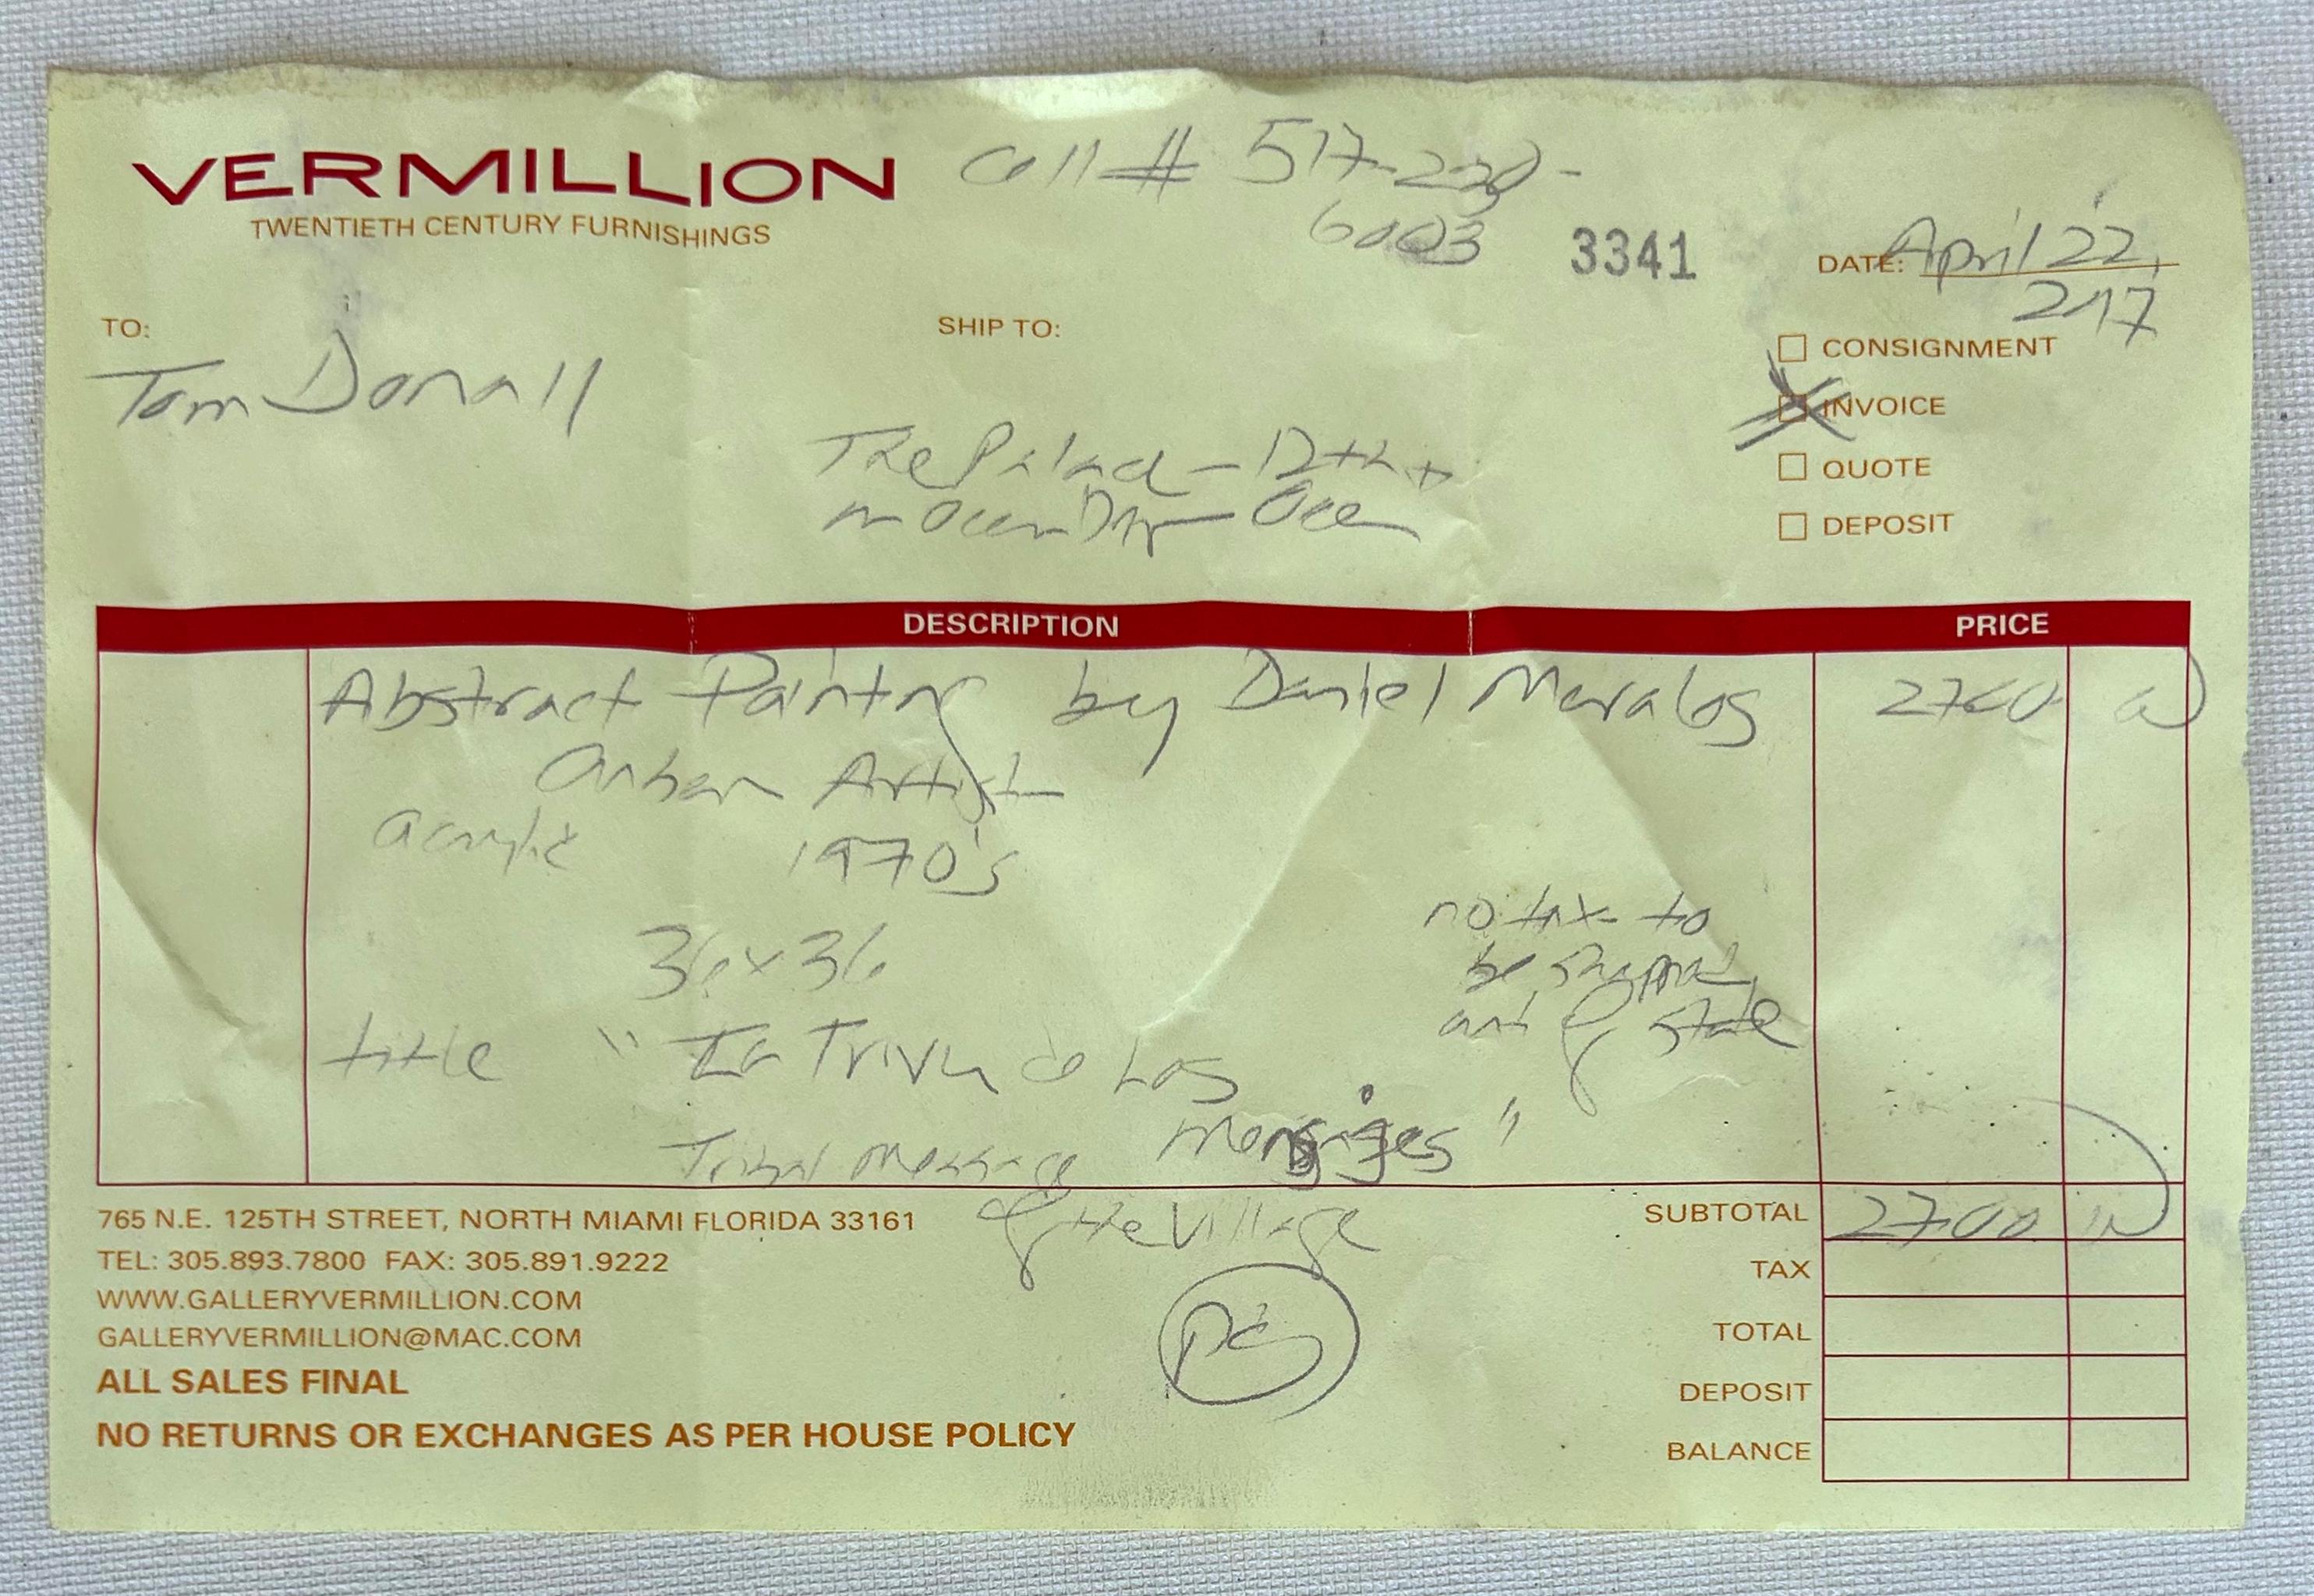 VERMILLION
TWENTIETH CENTURY FURNISHINGS
Cell # 517-230-
6003
3341
DATE: April 22,
2017
TO:
Tom Donall
SHIP TO:
CONSIGNMENT
INVOICE
QUOTE
DEPOSIT
The - 12th +
on Ocean
DESCRIPTION PRICE
Abstract Painting by Daniel
Artist
acrylic 1970's
36x36
no tax to
be shipped
out of state
title "
Tribal message
of the Village
765 N.E. 125TH STREET, NORTH MIAMI FLORIDA 33161
TEL: 305.893.7800 FAX: 305.891.9222
WWW.GALLERYVERMILLION.COM
GALLERYVERMILLION@MAC.COM
ALL SALES FINAL
NO RETURNS OR EXCHANGES AS PER HOUSE POLICY
SUBTOTAL 2700
TAX
TOTAL
DEPOSIT
BALANCE